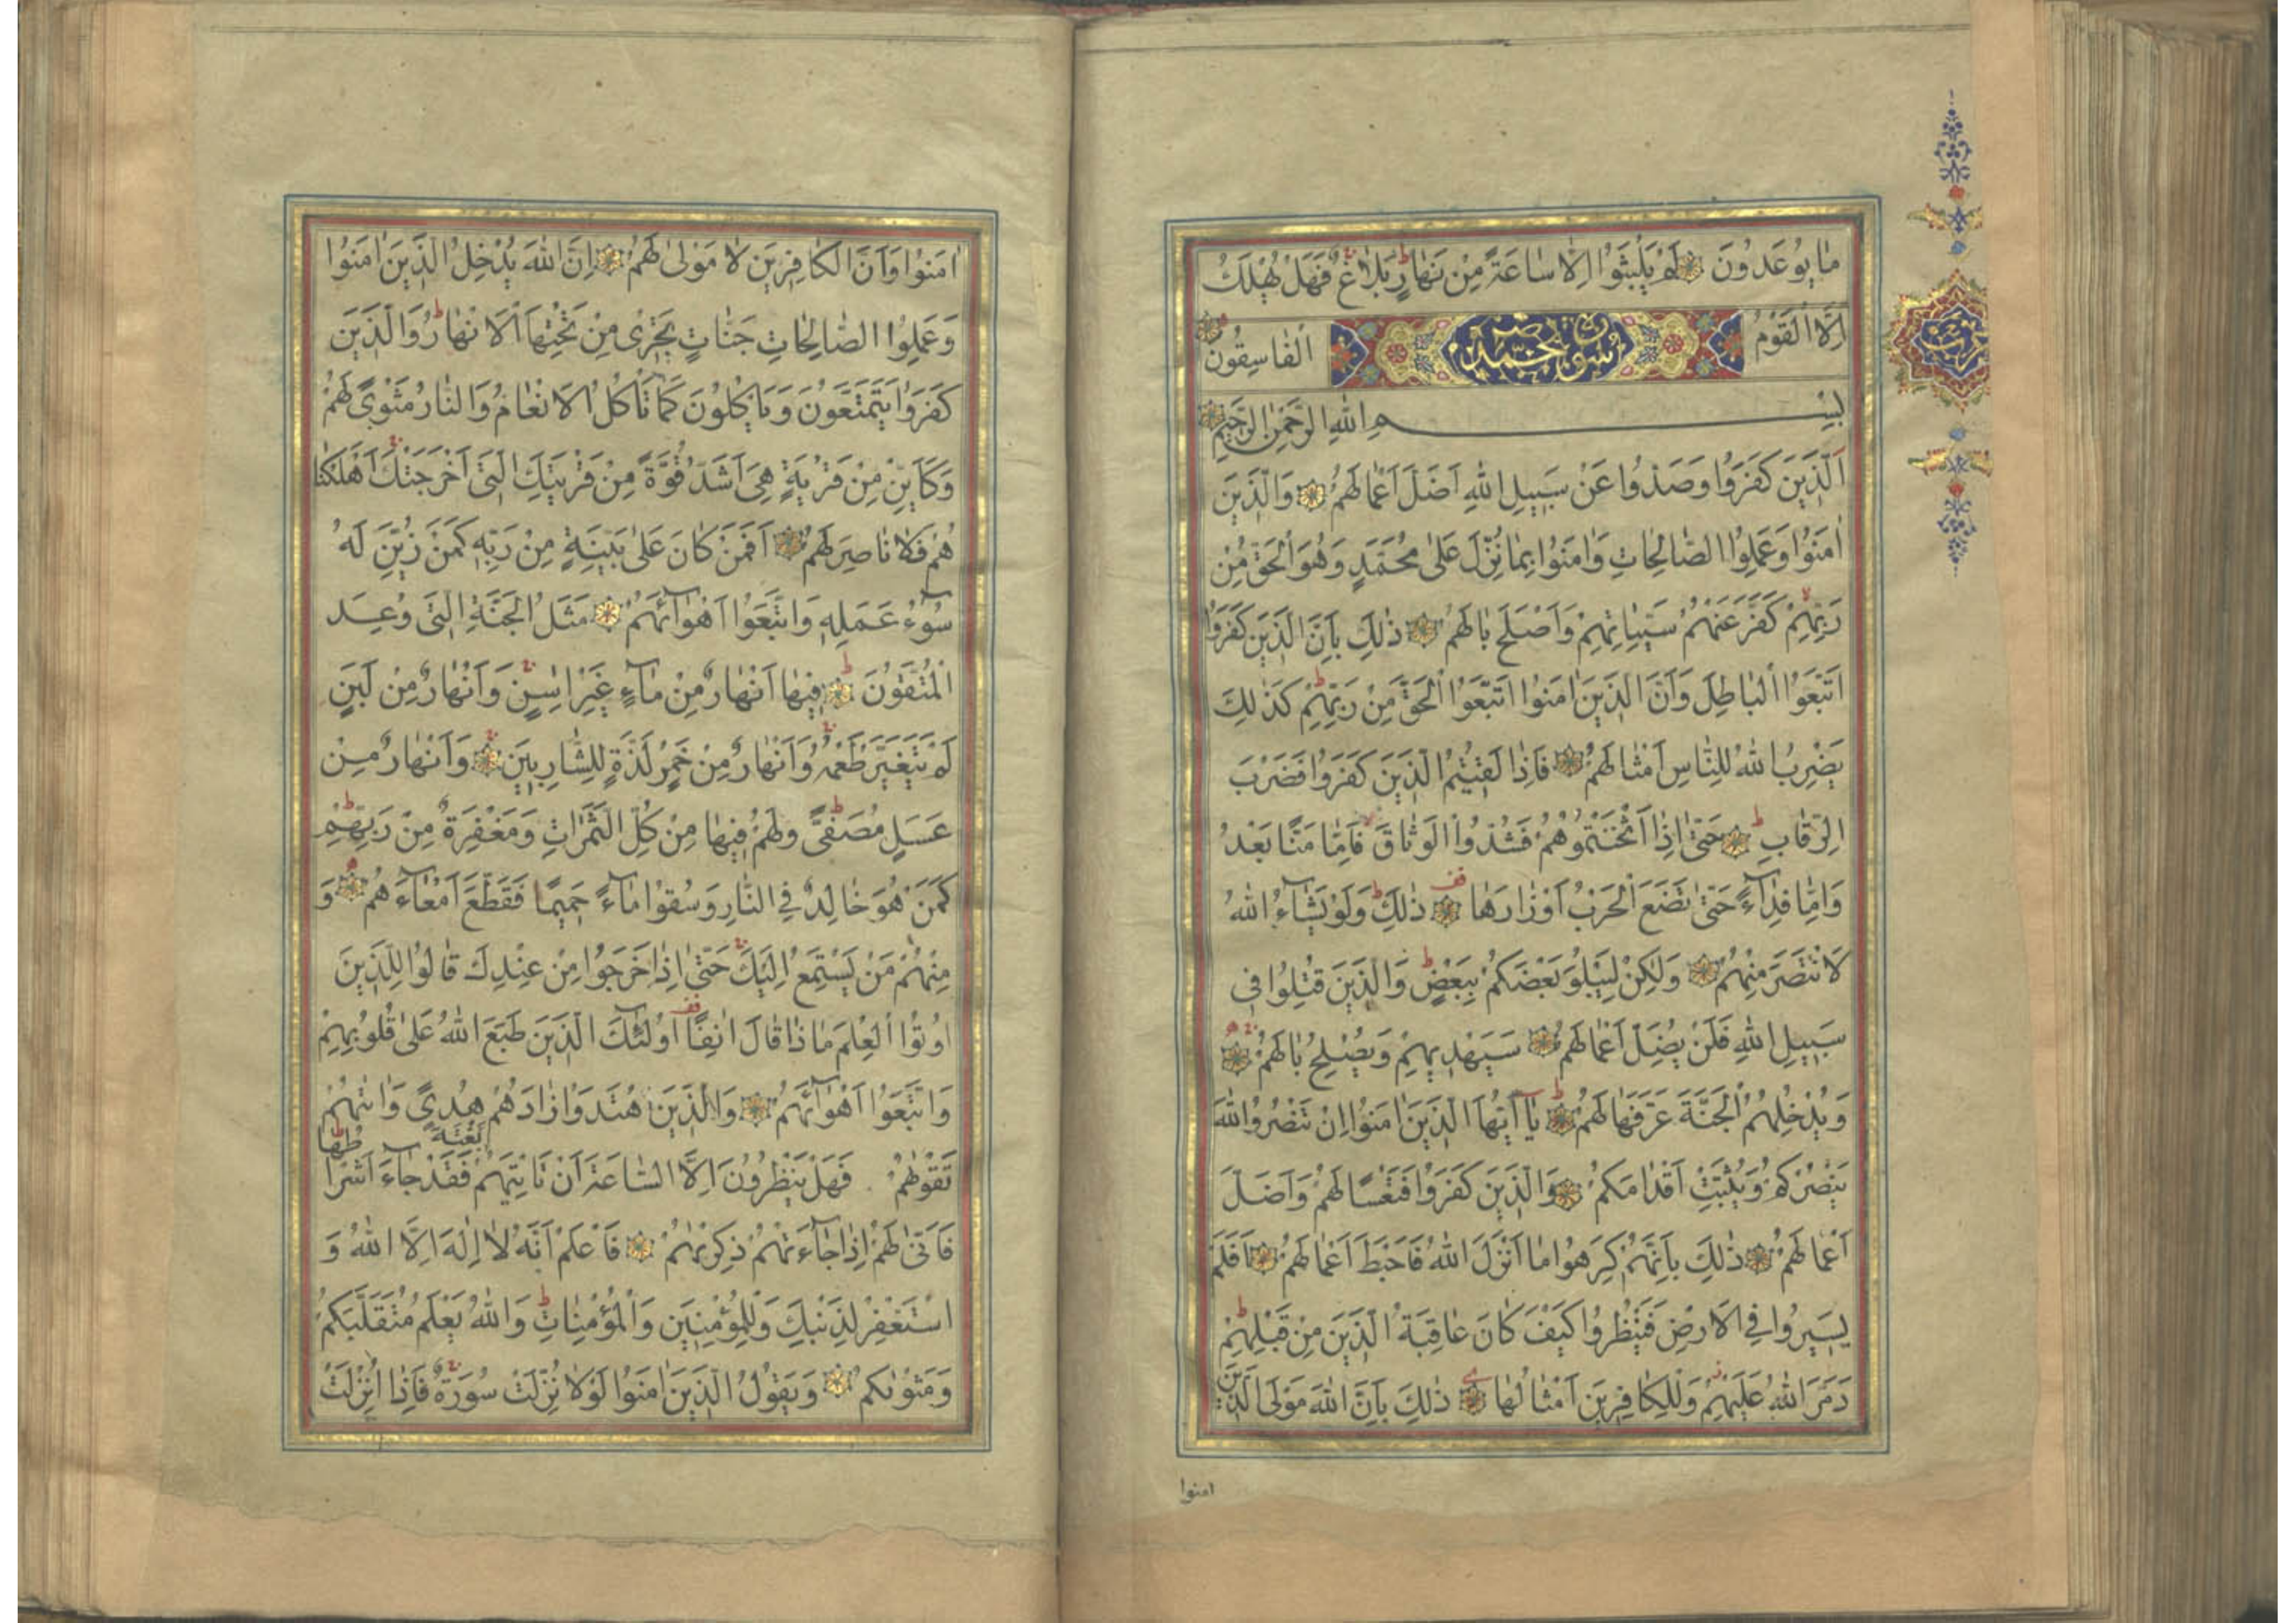 مٰا يُوعَدُونَ لَمْ يَلْبَثُوا اِلّٰا سٰاعَةً مِنْ نَهٰارٍ بَلٰاغٌ فَهَلْ يُهْلَكُ
اِلَّا الْقَوْمُ الْفٰاسِقُونَ
بِسْمِ اللّٰهِ الرَّحْمٰنِ الرَّحِيمِ
اَلَّذِينَ كَفَرُوا وَصَدُّوا عَنْ سَبِيلِ اللّٰهِ اَضَلَّ اَعْمٰالَهُمْ وَالَّذِينَ
اٰمَنُوا وَعَمِلُوا الصّٰالِحٰاتِ وَاٰمَنُوا بِمٰا نُزِّلَ عَلىٰ مُحَمَّدٍ وَهُوَ الْحَقُّ مِنْ
رَبِّهِمْ كَفَّرَ عَنْهُمْ سَيِّئٰاتِهِمْ وَاَصْلَحَ بٰالَهُمْ ذٰلِكَ بِاَنَّ الَّذِينَ كَفَرُوا
اتَّبَعُوا الْبٰاطِلَ وَاَنَّ الَّذِينَ اٰمَنُوا اتَّبَعُوا الْحَقَّ مِنْ رَبِّهِمْ كَذٰلِكَ
يَضْرِبُ اللّٰهُ لِلنّٰاسِ اَمْثٰالَهُمْ فَاِذٰا لَقِيتُمُ الَّذِينَ كَفَرُوا فَضَرْبَ
الرِّقٰابِ حَتّٰى اِذٰا اَثْخَنْتُمُوهُمْ فَشُدُّوا الْوَثٰاقَ فَاِمّٰا مَنًّا بَعْدُ
وَاِمّٰا فِدٰآءً حَتّٰى تَضَعَ الْحَرْبُ اَوْزٰارَهٰا ذٰلِكَ وَلَوْ يَشٰآءُ اللّٰهُ
لَانْتَصَرَ مِنْهُمْ وَلٰكِنْ لِيَبْلُوَ بَعْضَكُمْ بِبَعْضٍ وَالَّذِينَ قُتِلُوا فِى
سَبِيلِ اللّٰهِ فَلَنْ يُضِلَّ اَعْمٰالَهُمْ سَيَهْدِيهِمْ وَيُصْلِحُ بٰالَهُمْ
وَيُدْخِلُهُمُ الْجَنَّةَ عَرَّفَهٰا لَهُمْ يٰآ اَيُّهَا الَّذِينَ اٰمَنُوا اِنْ تَنْصُرُوا اللّٰهَ
يَنْصُرْكُمْ وَيُثَبِّتْ اَقْدٰامَكُمْ وَالَّذِينَ كَفَرُوا فَتَعْسًا لَهُمْ وَاَضَلَّ
اَعْمٰالَهُمْ ذٰلِكَ بِاَنَّهُمْ كَرِهُوا مٰا اَنْزَلَ اللّٰهُ فَاَحْبَطَ اَعْمٰالَهُمْ اَفَلَمْ
يَسِيرُوا فِى الْاَرْضِ فَيَنْظُرُوا كَيْفَ كٰانَ عٰاقِبَةُ الَّذِينَ مِنْ قَبْلِهِمْ
دَمَّرَ اللّٰهُ عَلَيْهِمْ وَلِلْكٰافِرِينَ اَمْثٰالُهٰا ذٰلِكَ بِاَنَّ اللّٰهَ مَوْلَى الَّذِينَ
امنوا
اٰمَنُوا وَاَنَّ الْكٰافِرِينَ لٰا مَوْلىٰ لَهُمْ اِنَّ اللّٰهَ يُدْخِلُ الَّذِينَ اٰمَنُوا
وَعَمِلُوا الصّٰالِحٰاتِ جَنّٰاتٍ تَجْرِى مِنْ تَحْتِهَا الْاَنْهٰارُ وَالَّذِينَ
كَفَرُوا يَتَمَتَّعُونَ وَيَاْكُلُونَ كَمٰا تَاْكُلُ الْاَنْعٰامُ وَالنّٰارُ مَثْوًى لَهُمْ
وَكَاَيِّنْ مِنْ قَرْيَةٍ هِىَ اَشَدُّ قُوَّةً مِنْ قَرْيَتِكَ الَّتِى اَخْرَجَتْكَ اَهْلَكْنٰا
هُمْ فَلٰا نٰاصِرَ لَهُمْ اَفَمَنْ كٰانَ عَلىٰ بَيِّنَةٍ مِنْ رَبِّهِ كَمَنْ زُيِّنَ لَهُ
سُوٓءُ عَمَلِهِ وَاتَّبَعُوا اَهْوٰآئَهُمْ مَثَلُ الْجَنَّةِ الَّتِى وُعِدَ
الْمُتَّقُونَ فِيهٰا اَنْهٰارٌ مِنْ مٰآءٍ غَيْرِ اٰسِنٍ وَاَنْهٰارٌ مِنْ لَبَنٍ
لَمْ يَتَغَيَّرْ طَعْمُهُ وَاَنْهٰارٌ مِنْ خَمْرٍ لَذَّةٍ لِلشّٰارِبِينَ وَاَنْهٰارٌ مِنْ
عَسَلٍ مُصَفًّى وَلَهُمْ فِيهٰا مِنْ كُلِّ الثَّمَرٰاتِ وَمَغْفِرَةٌ مِنْ رَبِّهِمْ
كَمَنْ هُوَ خٰالِدٌ فِى النّٰارِ وَسُقُوا مٰآءً حَمِيمًا فَقَطَّعَ اَمْعٰآءَ هُمْ وَ
مِنْهُمْ مَنْ يَسْتَمِعُ اِلَيْكَ حَتّٰى اِذٰا خَرَجُوا مِنْ عِنْدِكَ قٰالُوا لِلَّذِينَ
اُوتُوا الْعِلْمَ مٰا ذٰا قٰالَ اٰنِفًا اُولٰٓئِكَ الَّذِينَ طَبَعَ اللّٰهُ عَلىٰ قُلُوبِهِمْ
وَاتَّبَعُوا اَهْوٰآئَهُمْ وَالَّذِينَ اهْتَدَوْا زٰادَهُمْ هُدًى وَاٰتٰيهُمْ
تَقْوٰيهُمْ فَهَلْ يَنْظُرُونَ اِلَّا السّٰاعَةَ اَنْ تَاْتِيَهُمْ بَغْتَةً فَقَدْ جٰآءَ اَشْرٰاطُهٰا
فَاَنّٰى لَهُمْ اِذٰا جٰآءَتْهُمْ ذِكْرٰيهُمْ فَاعْلَمْ اَنَّهُ لٰا اِلٰهَ اِلَّا اللّٰهُ وَ
اسْتَغْفِرْ لِذَنْبِكَ وَلِلْمُؤْمِنِينَ وَالْمُؤْمِنٰاتِ وَاللّٰهُ يَعْلَمُ مُتَقَلَّبَكُمْ
وَمَثْوٰيكُمْ وَيَقُولُ الَّذِينَ اٰمَنُوا لَوْلٰا نُزِّلَتْ سُورَةٌ فَاِذٰا اُنْزِلَتْ